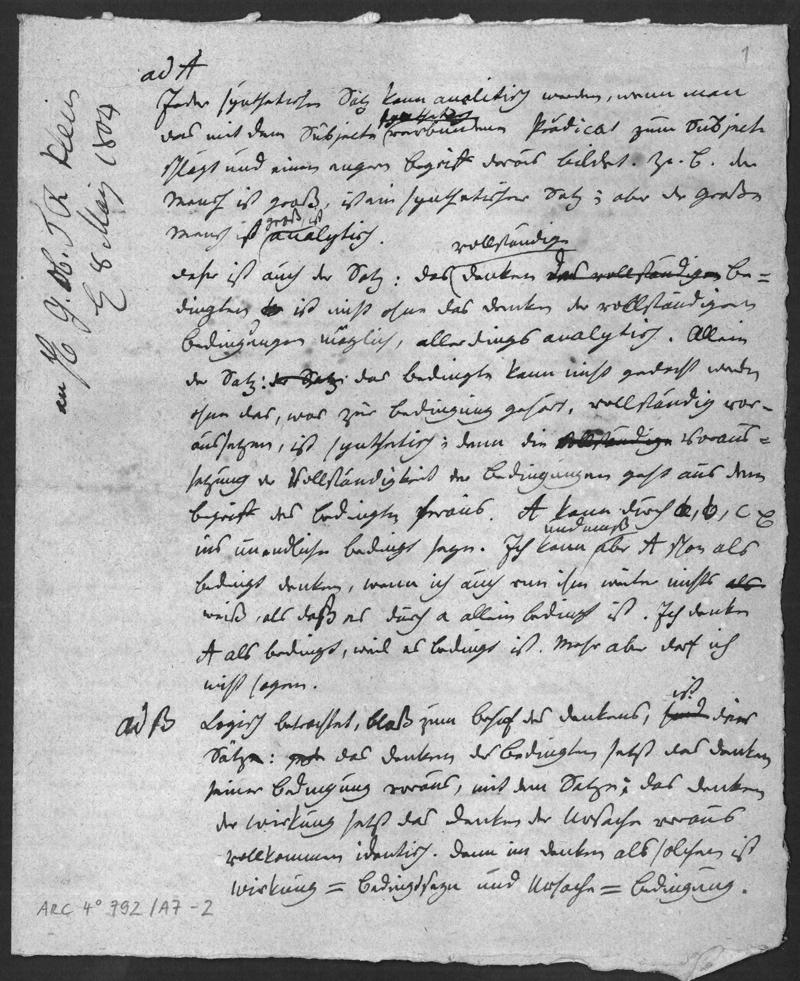 1
an H. G. Ob. T. R. Klein
8 May 1804
ad A
Jeder synthetische Satz kann analitisch werden, wenn man
das mit dem Subjecte synthetisch verbundene Prädicat zum Subjecte
schlägt und einen engern Begriff daraus bildet. Z. B. der
Mensch ist groß, ist ein synthetischer Satz; aber der große
Mensch ist groß, ist analytisch.
daher ist auch der Satz: das vollständige denken des vollständigen Be=
dingten ist nicht ohne das denken der vollständigen
Bedingungen möglich, allerdings analytisch. Allein
der Satz: der Satz: das Bedingte kann nicht gedacht werden
ohne das, was zur Bedingung gehört, vollständig vor-
auszusetzen, ist synthetisch; denn die vollständige Voraus=
setzung der Vollständigkeit der Bedingungen geht aus dem
Begriff des Bedingten heraus. A kann durch a, b, c
ins unendliche bedingt seyn. Ich kann und muß aber A schon als
bedingt denken, wenn ich auch von ihm weiter nichts als
weiß, als daß es durch a allein bedingt ist. Ich denke
A als bedingt, weil es bedingt ist. Mehr aber darf ich
nicht sagen.
ad B
Logisch betrachtet, blos zum Behuf des denkens, sind ist dieser
Satz: das denken des Bedingten setzt das denken
seiner Bedingung voraus, mit dem Satze: das denken
der Wirkung setzt das denken der Ursache voraus
vollkommen identisch. denn im denken als solchem ist
Wirkung = Bedingtseyn und Ursache = Bedingung.
ARC 4° 792/A7-2